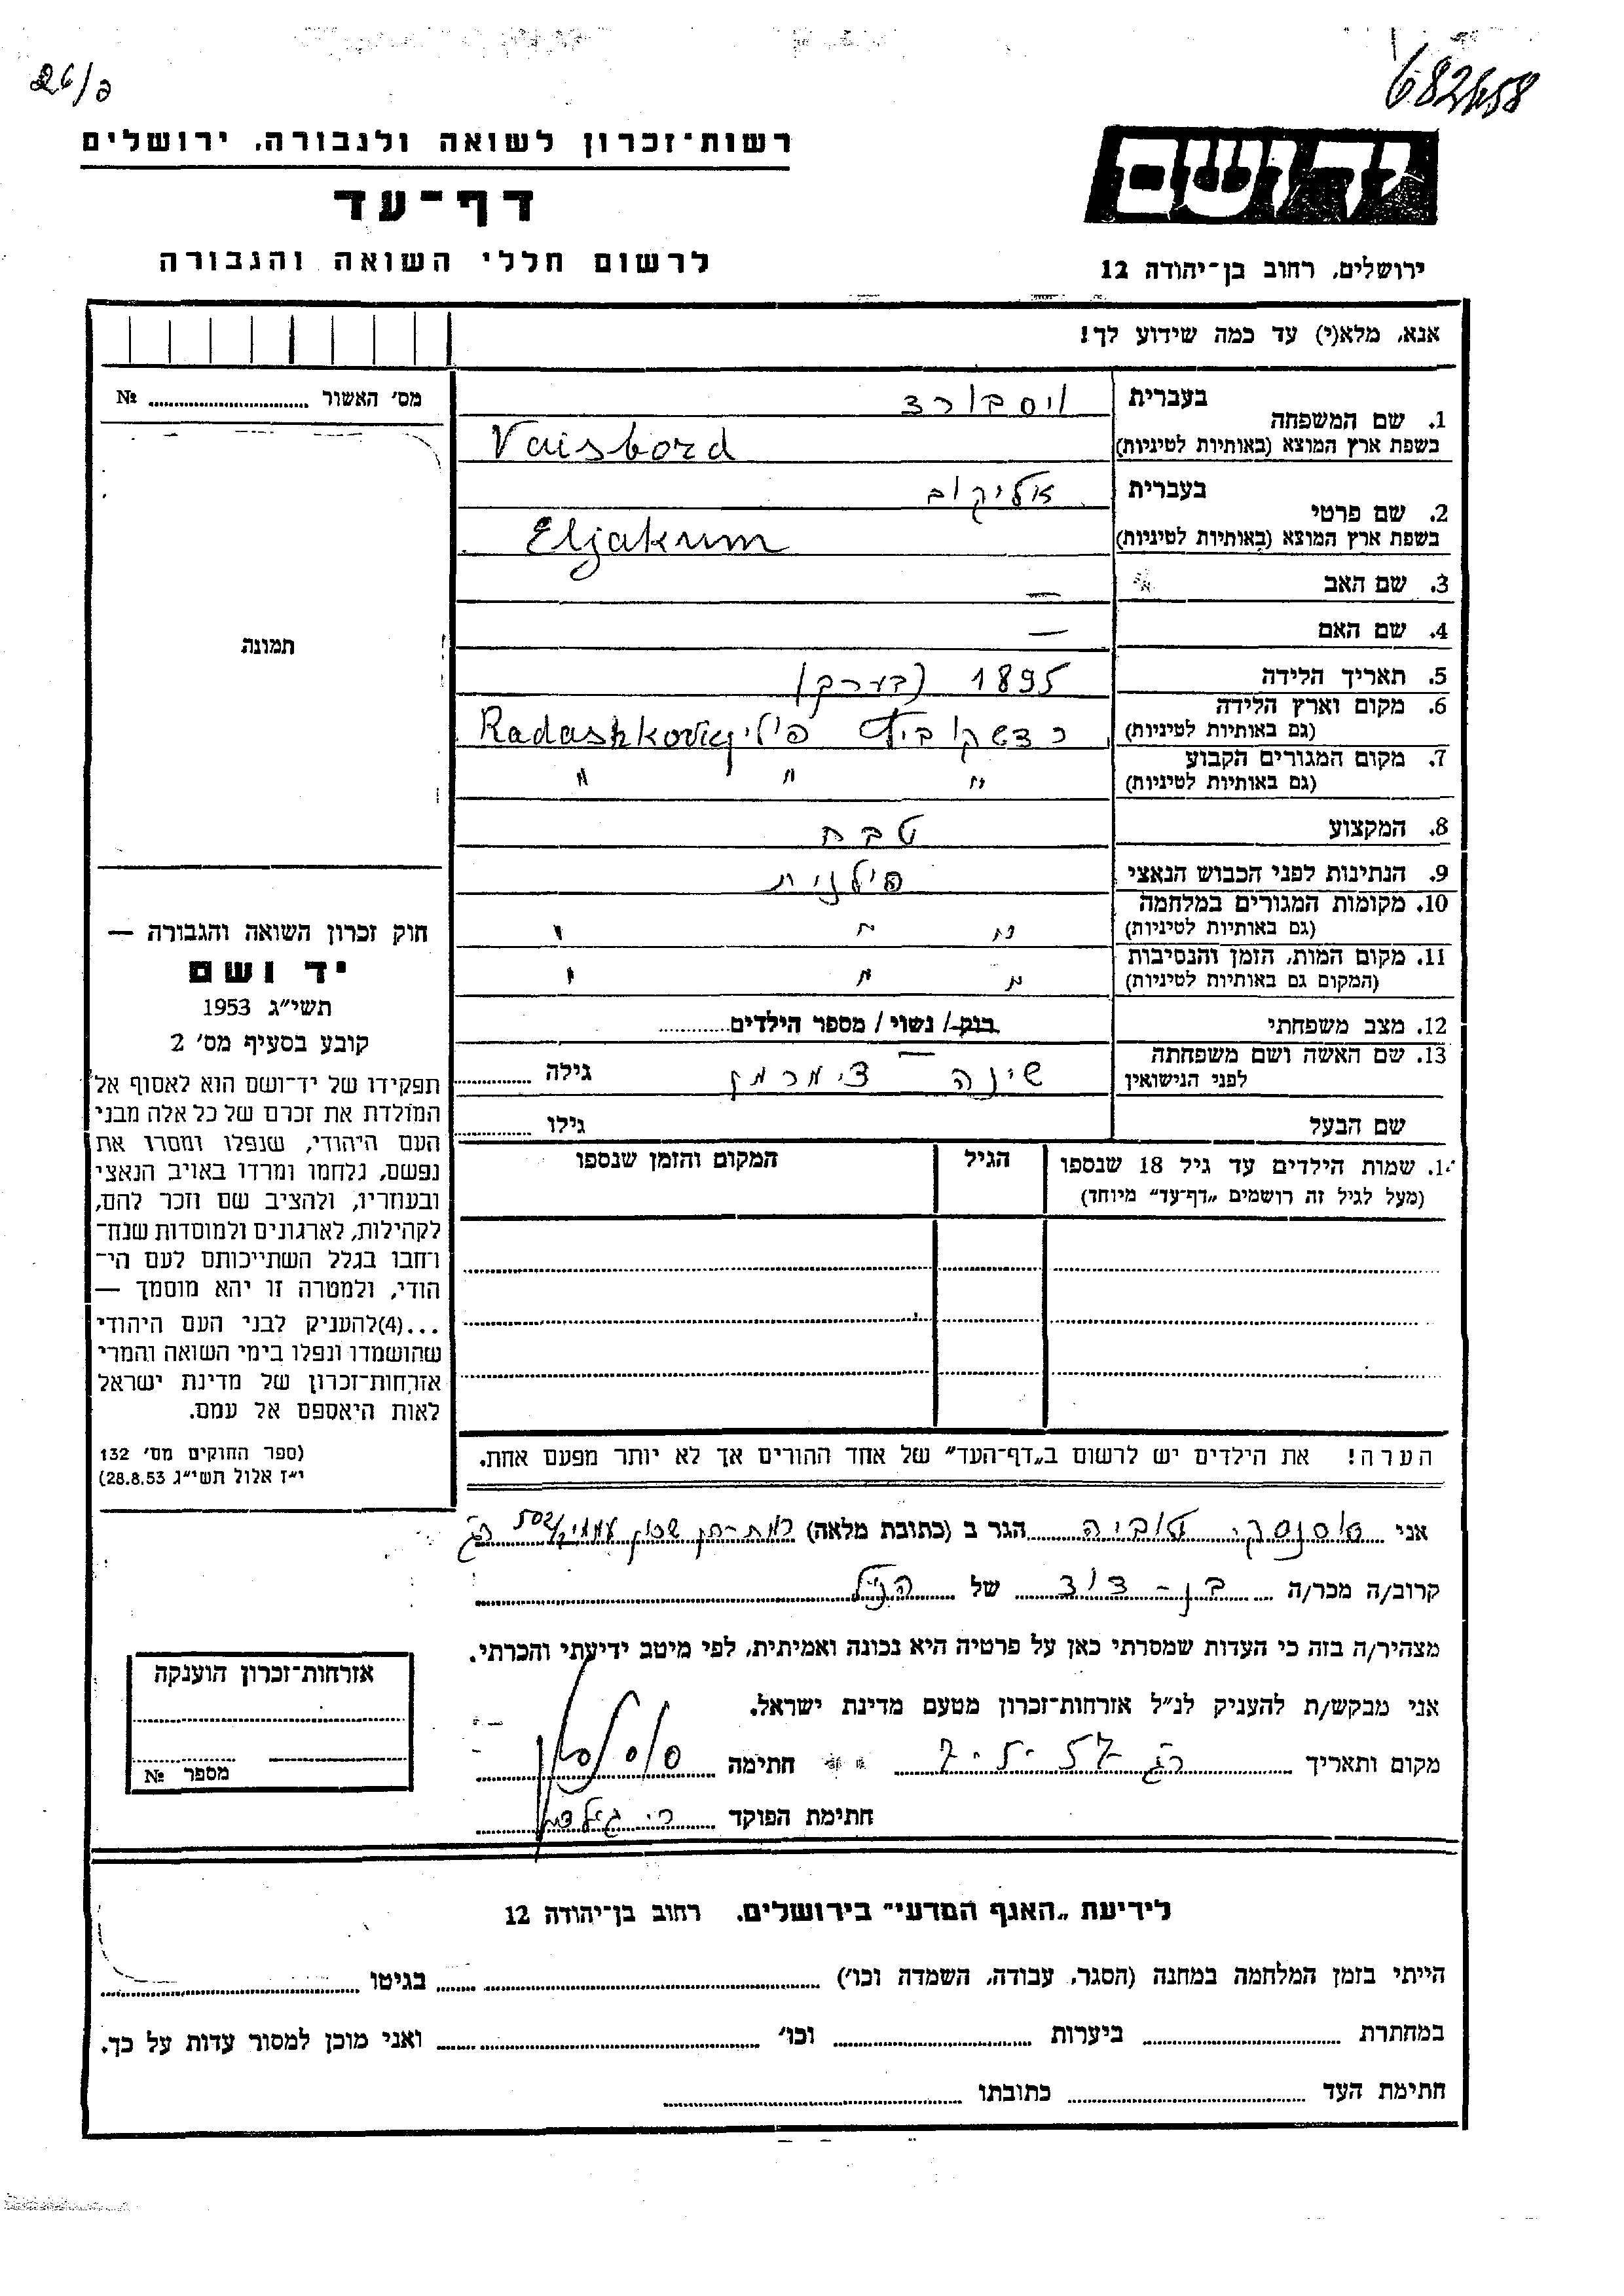 682658
26/פ
רשות-זכרון לשואה ולגבורה, ירושלים
דף-עד
לרשום חללי השואה והגבורה
יד ושם
ירושלים, רחוב בן-יהודה 12
אנא, מלא(י) עד כמה שידוע לך!
מס' האשור № ....................
תמונה
1. שם המשפחה
בעברית ויסבורד
בשפת ארץ המוצא (באותיות לטיניות) Vaisbord
2. שם פרטי
בעברית אליקום
בשפת ארץ המוצא (באותיות לטיניות) Eljakum
3. שם האב —
4. שם האם —
5. תאריך הלידה 1895 (בערך)
6. מקום וארץ הלידה
(גם באותיות לטיניות) רדשקוביץ פולין Radashkoviq
7. מקום המגורים הקבוע
(גם באותיות לטיניות) " " "
8. המקצוע טבח
9. הנתינות לפני הכבוש הנאצי פולנית
10. מקומות המגורים במלחמה
(גם באותיות לטיניות) " " "
11. מקום המות, הזמן והנסיבות
(המקום גם באותיות לטיניות) " " "
12. מצב משפחתי רווק/ נשוי/ מספר הילדים............
13. שם האשה ושם משפחתה
לפני הנישואין שינה צימרמן גילה ............
שם הבעל גילו ............
14. שמות הילדים עד גיל 18 שנספו
(מעל לגיל זה רושמים „דף-עד" מיוחד)
הגיל
המקום והזמן שנספו
חוק זכרון השואה והגבורה —
יד ושם
תשי"ג 1953
קובע בסעיף מס' 2
תפקידו של יד-ושם הוא לאסוף אל
המולדת את זכרם של כל אלה מבני
העם היהודי, שנפלו ומסרו את
נפשם, נלחמו ומרדו באויב הנאצי
ובעוזריו, ולהציב שם וזכר להם,
לקהילות, לארגונים ולמוסדות שנח-
רחבו בגלל השתייכותם לעם הי-
הודי, ולמטרה זו יהא מוסמך —
...(4)להעניק לבני העם היהודי
שהושמדו ונפלו בימי השואה והמרי
אזרחות-זכרון של מדינת ישראל
לאות היאספם אל עמם.
(ספר החוקים מס' 132
י"ז אלול תשי"ג 28.8.53)
הערה! את הילדים יש לרשום ב„דף-העד" של אחד ההורים אך לא יותר מפעם אחת.
אני טוביה הגר ב (כתובת מלאה) רמת-גן שכון עממי 502/ רג
קרוב/ה מכר/ה בן-דוד של הנ"ל
מצהיר/ה בזה כי העדות שמסרתי כאן על פרטיה היא נכונה ואמיתית, לפי מיטב ידיעתי והכרתי.
אני מבקש/ת להעניק לנ"ל אזרחות-זכרון מטעם מדינת ישראל.
מקום ותאריך רג 7.5.57 חתימה
חתימת הפוקד
אזרחות-זכרון הוענקה
מספר №
לידיעת „האגף המדעי" בירושלים, רחוב בן-יהודה 12
הייתי בזמן המלחמה במחנה (הסגר, עבודה, השמדה וכו') .................... בגיטו ....................
במחתרת .................... ביערות .................... וכו' .................... ואני מוכן למסור עדות על כך.
חתימת העד .................... כתובתו ....................